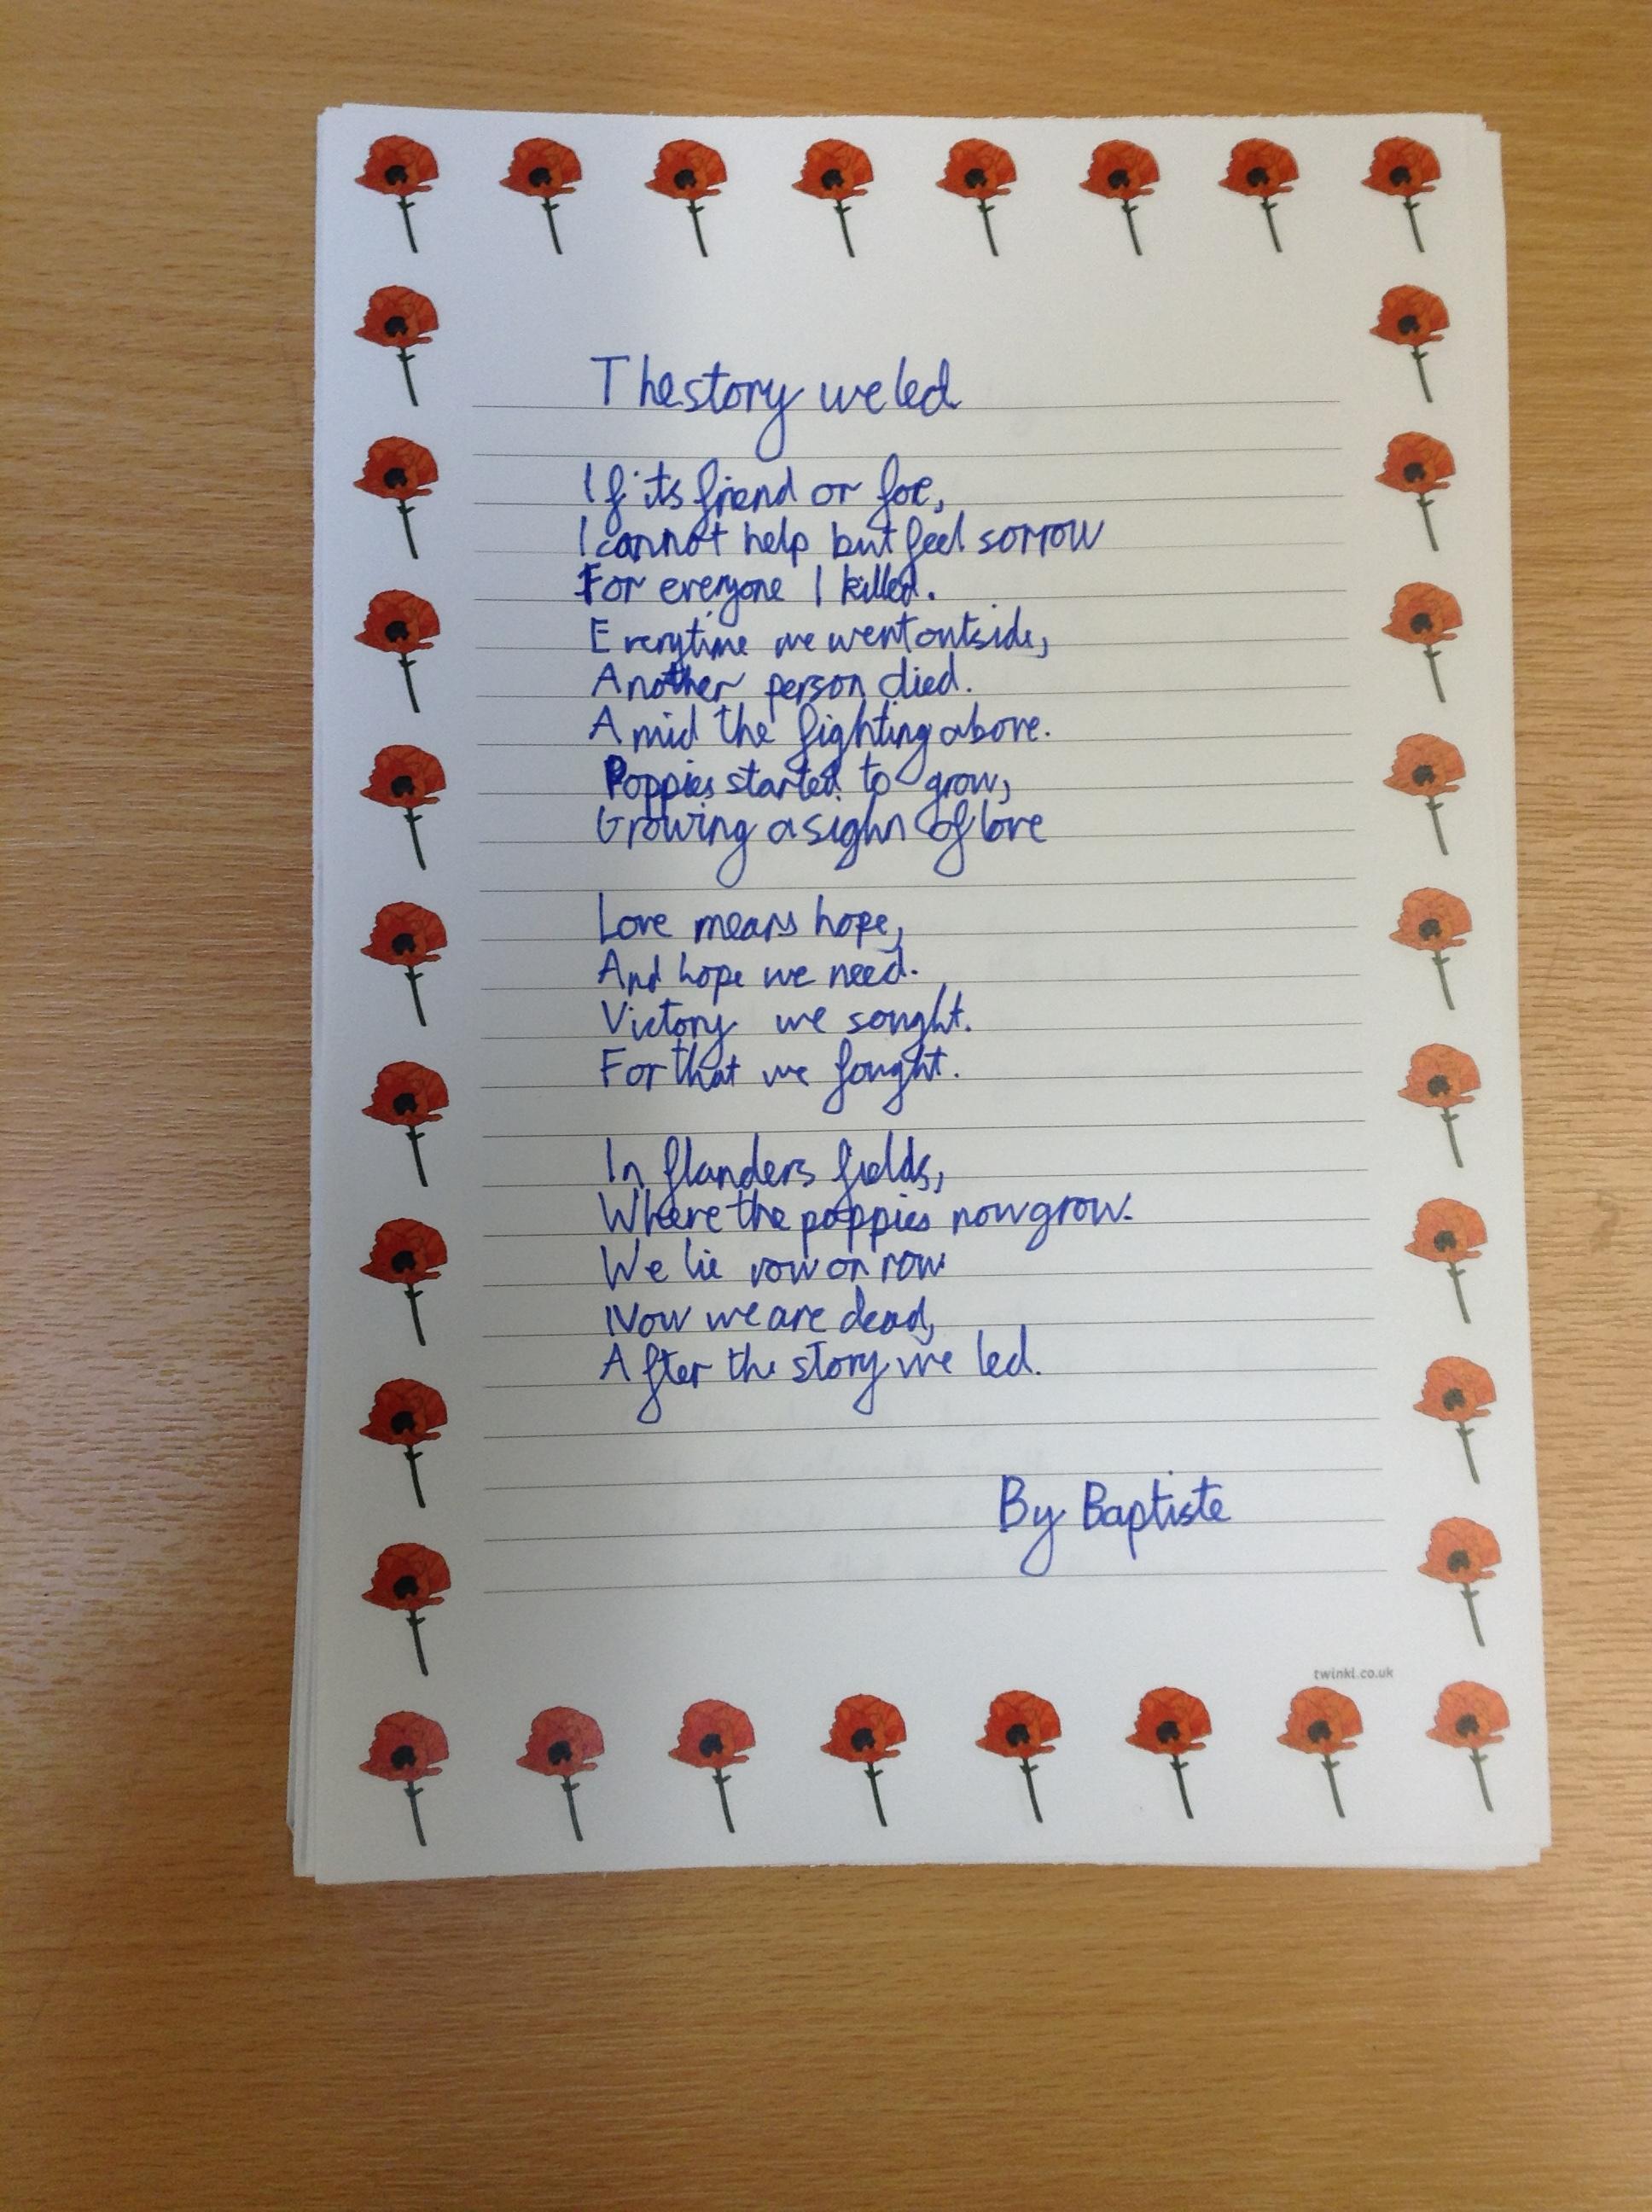 The story we led
If its friend or foe,
I cannot help but feel sorrow
For everyone I killed.
Everytime we went outside,
Another person died.
Amid the fighting above.
Poppies started to grow,
Growing a sighn of love
Love means hope,
And hope we need.
Victory we sought.
For that we fought.
In flanders fields,
Where the poppies now grow.
We lie row on row
Now we are dead,
After the story we led.
By Baptiste
twinkl.co.uk